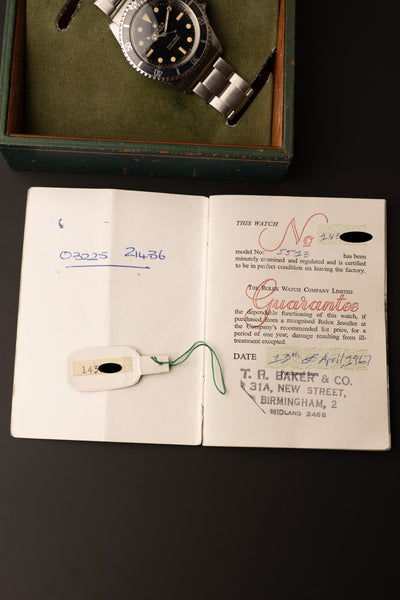 03225 21486
143
THIS WATCH
No 143
model No: 5513 has been
minutely examined and regulated and is certified
to be in perfect condition on leaving the factory.
THE ROLEX WATCH COMPANY LIMITED
Guarantee
the dependable functioning of this watch, if
purchased from a recognised Rolex Jeweller at
the Company's recommended list price, for a
period of one year, damage resulting from ill-
treatment excepted.
DATE 13th of April 1967
T. A. BAKER & CO.
31A, NEW STREET,
BIRMINGHAM, 2
MIDLAND 2465